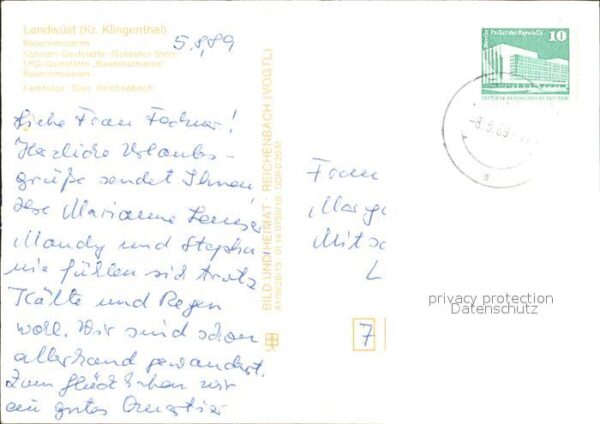 Landwüst (Kr. Klingenthal)
Bauernmuseum
Konsum-Gaststätte „Goldener Stern"
LPG-Gaststätte „Bauernschänke"
Bauernmuseum
Farbfotos: Darr, Reichenbach
5.8.89
Liebe Frau
Herzliche Urlaubs-
grüße sendet Ihnen
Marianne
Mandy und
wie fühlen sich trotz
Kälte und Regen
wohl. Wir sind schon
allerhand gewandert.
Zum Glück haben wir
ein gutes Quartier
BILD UND HEIMAT · REICHENBACH (VOGTL)
DDR 0,20 M
Berlin Palast der Republik
10
DEUTSCHE DEMOKRATISCHE REPUBLIK
-8.8.89
Frau
Mitw
L
7
privacy protection
Datenschutz